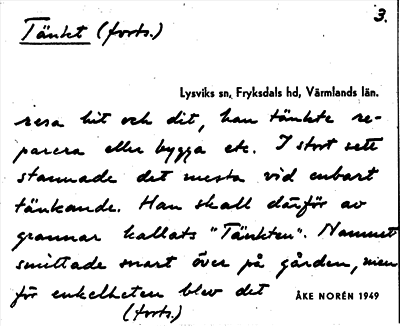 3.
Tänket (forts.)
Lysviks sn, Fryksdals hd, Värmlands län.
resa hit och dit, han tänkte re-
parera eller bygga etc. I stort sett
stannade det mesta vid enbart
tänkande. Han skall därför av
grannar kallats "Tänkten". Namnet
smittade snart över på gården, men
för enkelheten blev det
ÅKE NORÉN 1949
(forts.)